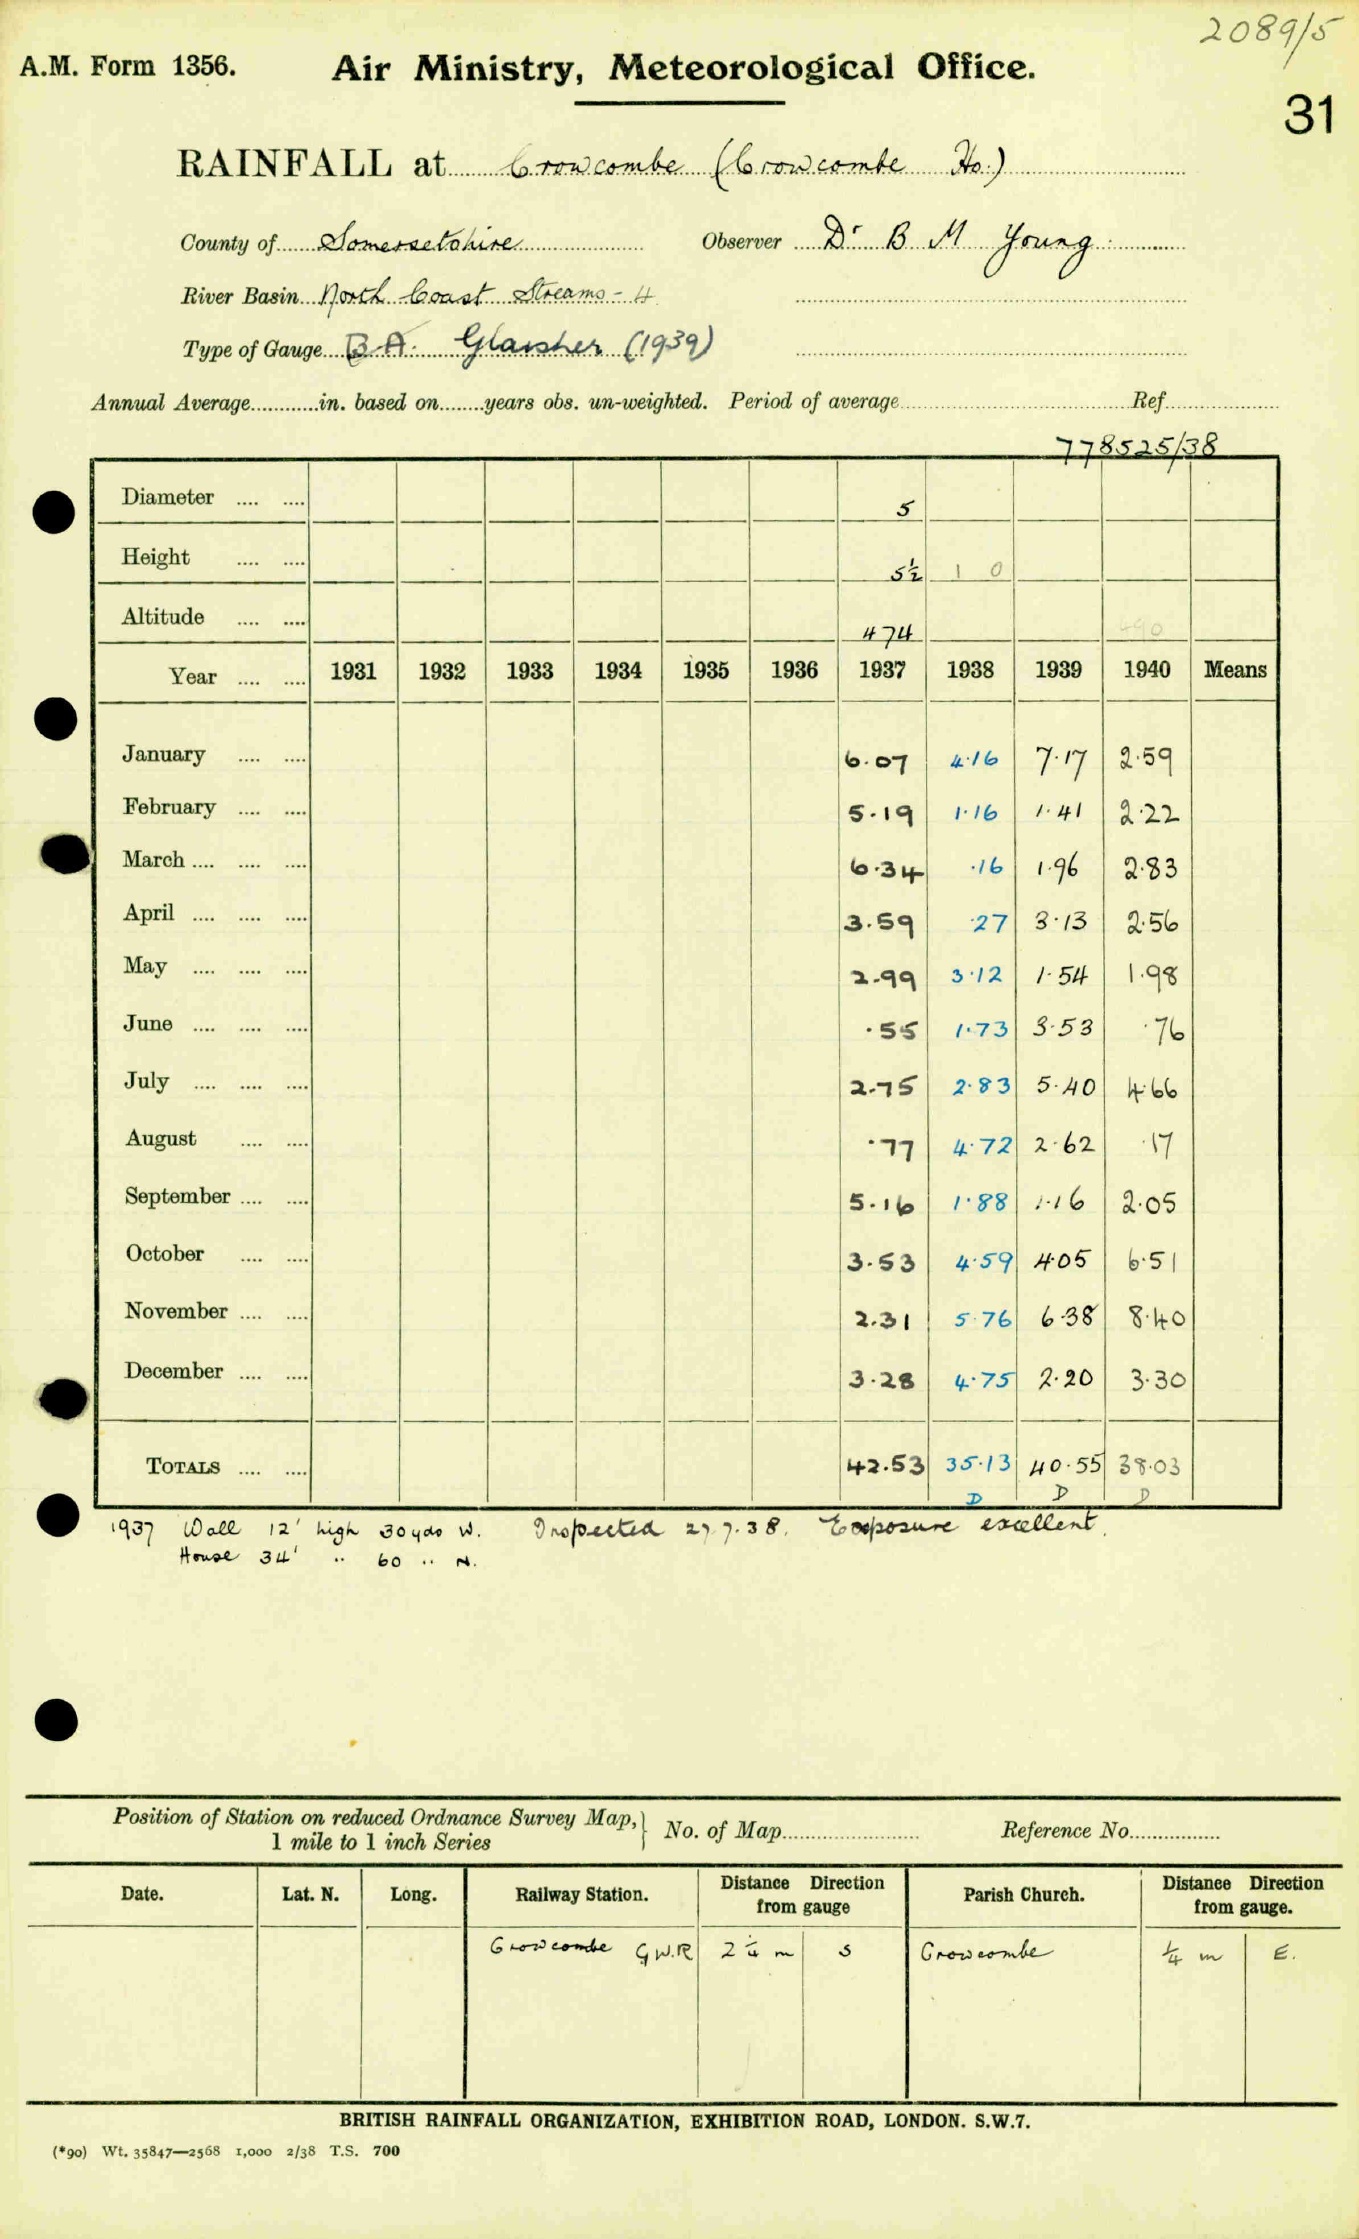 2089/5
A.M. Form 1356. Air Ministry, Meteorological Office.
31
RAINFALL at Crowcombe (Crowcombe Ho.)
County of Somersetshire Observer Dr B M Young
River Basin North Coast Streams - 4
Type of Gauge B.A. Glaisher (1939)
Annual Average............in. based on........years obs. un-weighted. Period of average Ref.
778525/38
Diameter .... .... 5
Height .... .... 5½ 1 0
Altitude .... .... 474 490
Year .... .... 1931 1932 1933 1934 1935 1936 1937 1938 1939 1940 Means
January .... .... 6.07 4.16 7.17 2.59
February .... .... 5.19 1.16 1.41 2.22
March .... .... .... 6.34 .16 1.96 2.83
April .... .... .... 3.59 .27 3.13 2.56
May .... .... .... 2.99 3.12 1.54 1.98
June .... .... .... .55 1.73 3.53 .76
July .... .... .... 2.75 2.83 5.40 4.66
August .... .... .77 4.72 2.62 .17
September .... .... 5.16 1.88 1.16 2.05
October .... .... 3.53 4.59 4.05 6.51
November .... .... 2.31 5.76 6.38 8.40
December .... .... 3.28 4.75 2.20 3.30
TOTALS .... .... 42.53 35.13 40.55 38.03
D D D
1937 Wall 12' high 30 yds W. Inspected 27.7.38. Exposure excellent.
House 34' " 60 " N.
Position of Station on reduced Ordnance Survey Map, 1 mile to 1 inch Series } No. of Map Reference No.
Date. Lat. N. Long. Railway Station. Distance Direction from gauge Parish Church. Distance Direction from gauge.
Crowcombe G.W.R 2¼ m S Crowcombe ¼ m E.
BRITISH RAINFALL ORGANIZATION, EXHIBITION ROAD, LONDON. S.W.7.
(*90) Wt. 35847—2568 1,000 2/38 T.S. 700